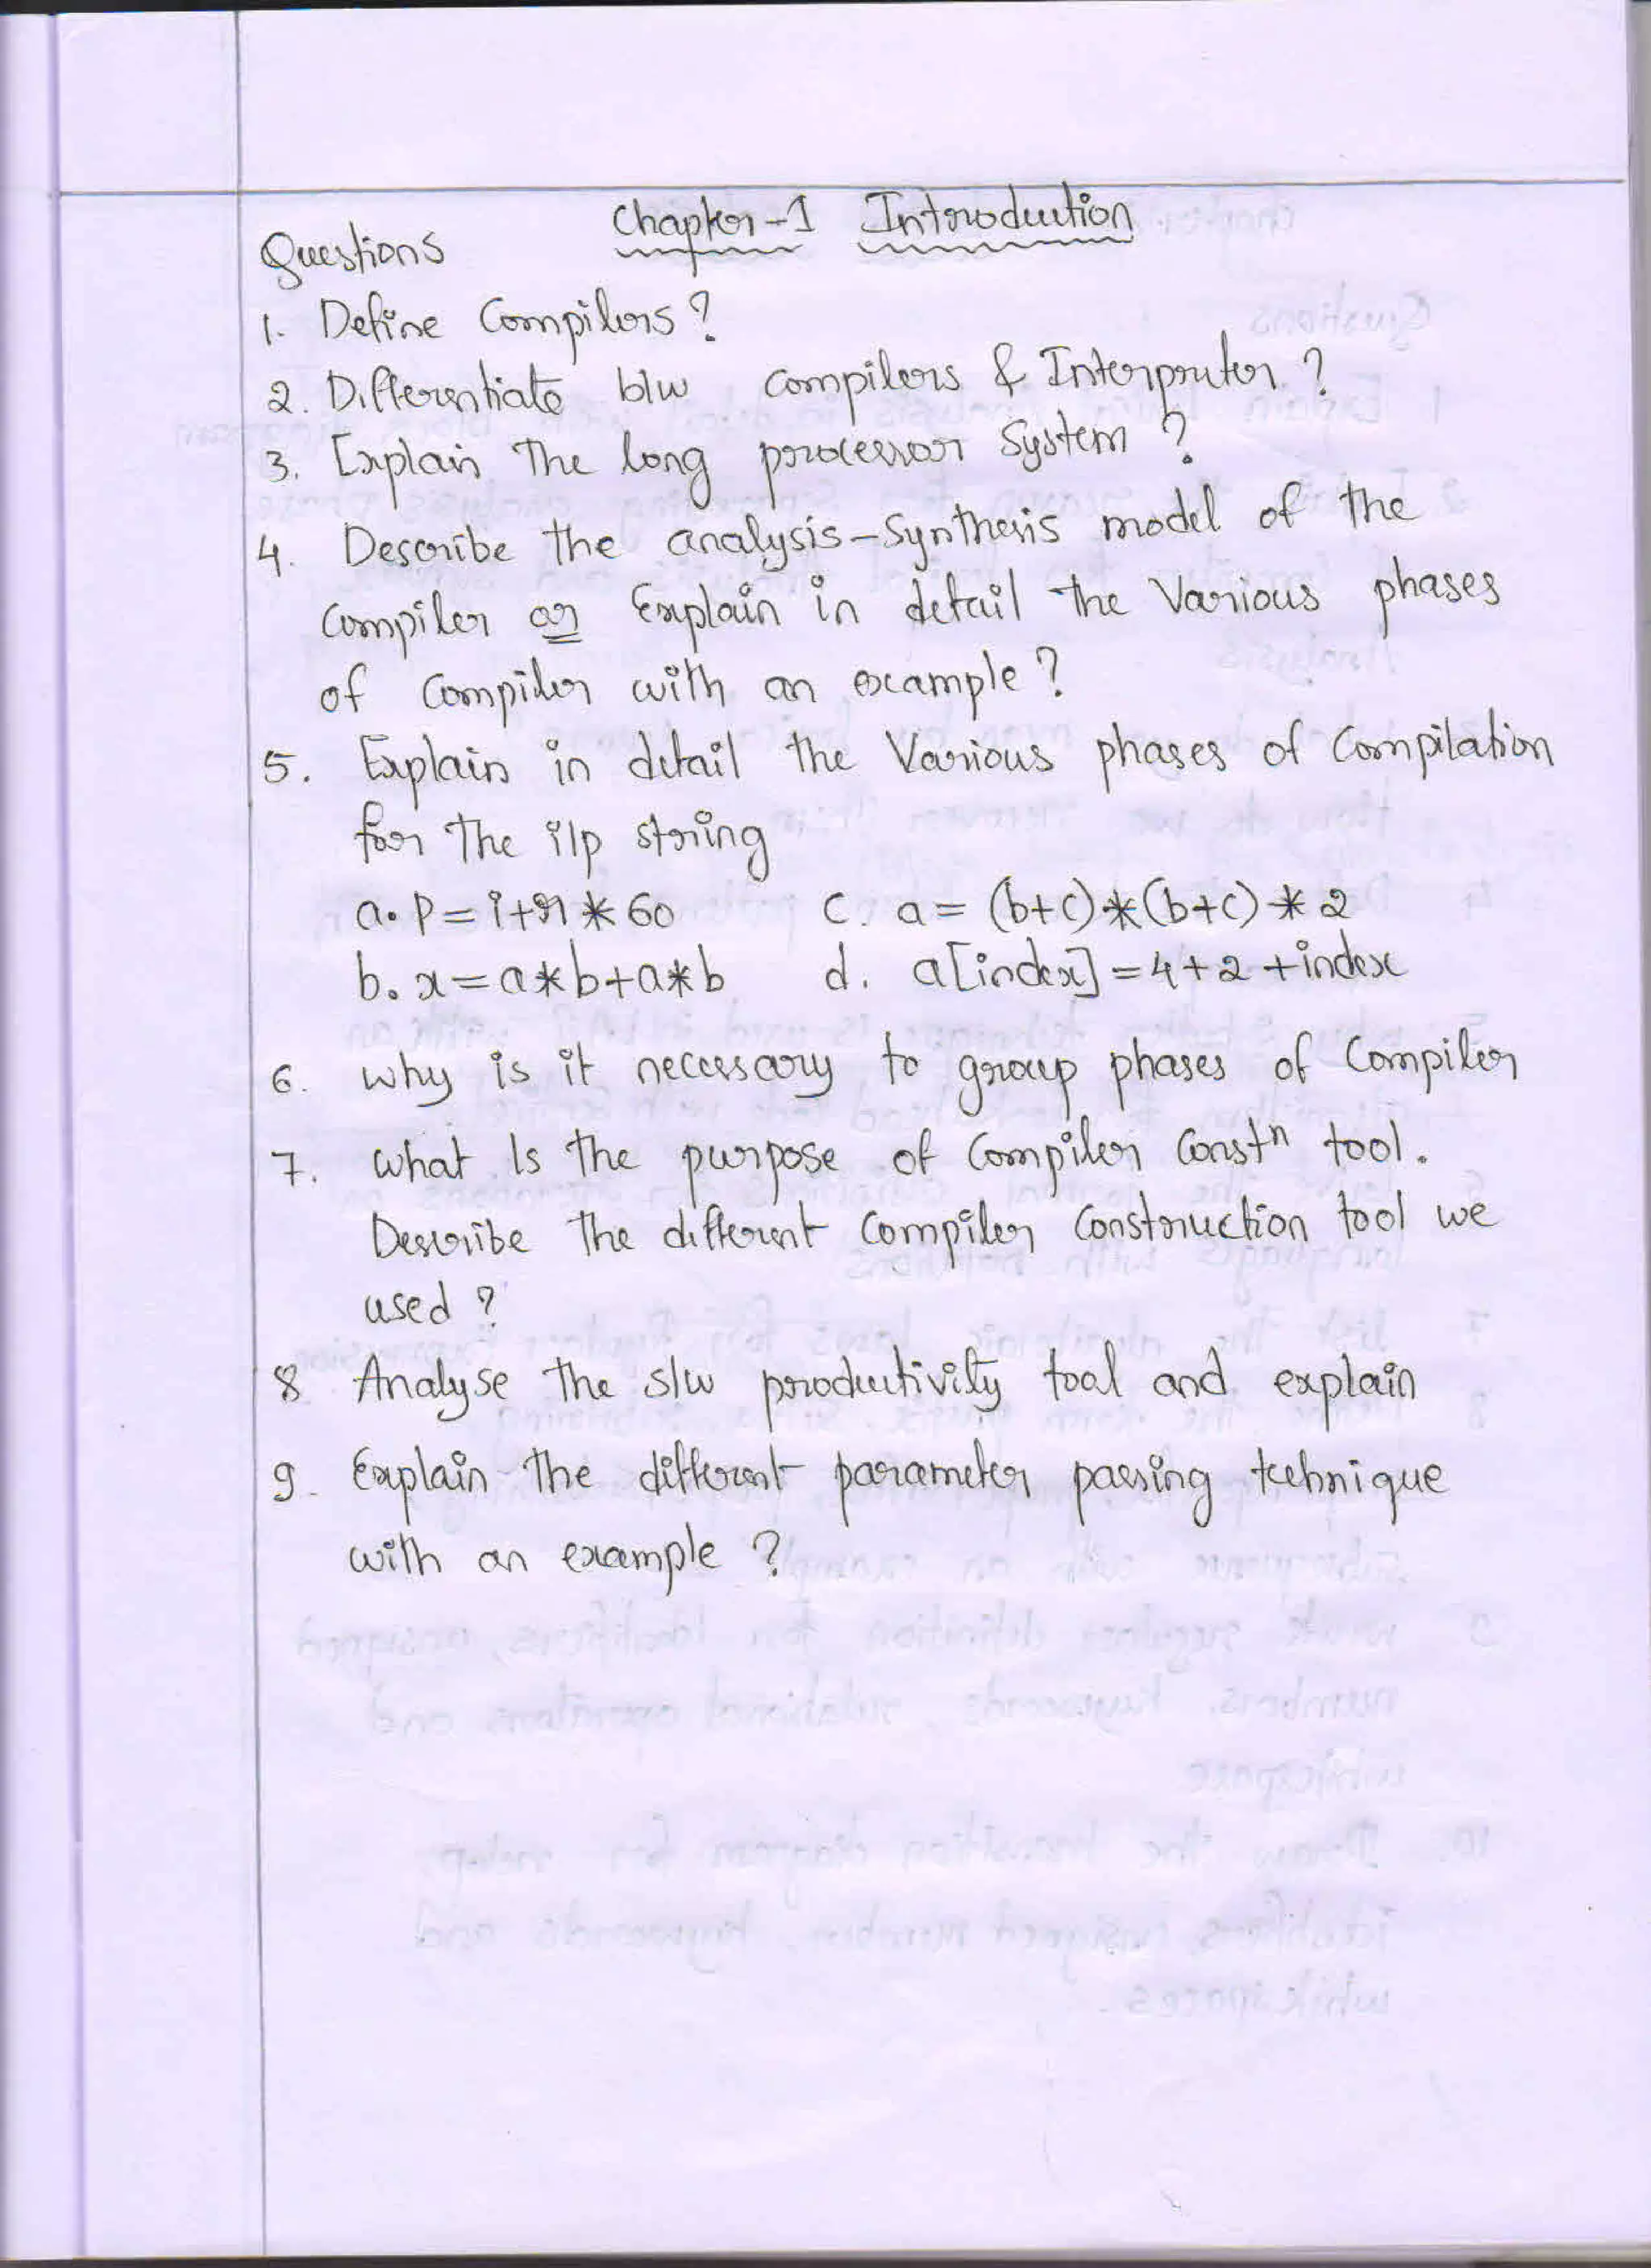 Chapter-1 Introduction
Questions
1. Define Compilers?
2. Differentiate b/w compilers & Interpreter?
3. Explain The lang processor System?
4. Describe the analysis-Synthesis model of the
Compiler or Explain in detail the Various phases
of Compiler with an example?
5. Explain in detail the Various phases of Compilation
for The i/p string
a. P = i+r * 60 c. a = (b+c)*(b+c) * 2
b. x = a*b+a*b d. a[index] = 4+2+index
6. why is it necessary to group phases of Compiler
7. what Is the purpose of Compiler Constn tool.
Describe The different Compiler Construction tool we
used?
8 Analyse The s/w productivity tool and explain
9. Explain The different parameter passing technique
with an example?